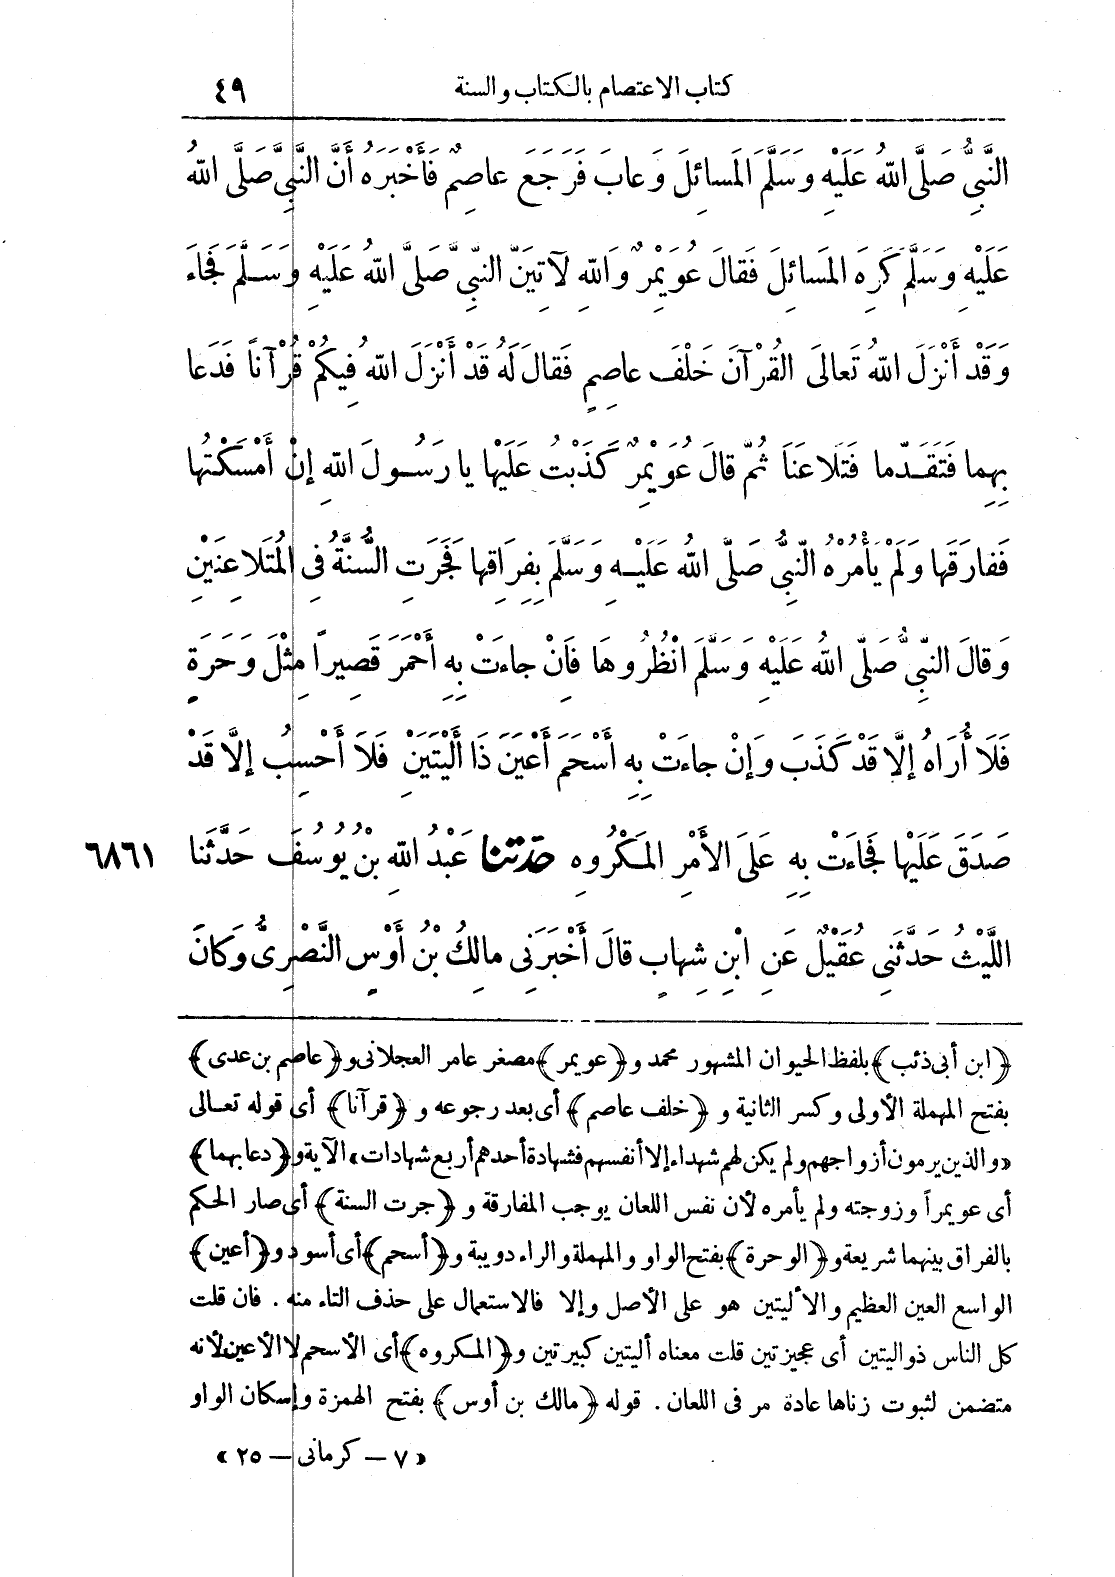 كتاب الاعتصام بالكتاب والسنة ٤٩
النَّبِىُّ صَلَّى اللهُ عَلَيْهِ وَسَلَّمَ المَسائِلَ وَعابَ فَرَجَعَ عاصِمٌ فَأَخْبَرَهُ أَنَّ النَّبِىَّ صَلَّى اللهُ
عَلَيْهِ وَسَلَّمَ كَرِهَ المَسائِلَ فَقالَ عُوَيْمِرٌ وَاللهِ لَآتِيَنَّ النَّبِىَّ صَلَّى اللهُ عَلَيْهِ وَسَلَّمَ فَجَاءَ
وَقَدْ أَنْزَلَ اللهُ تَعالَى القُرْآنَ خَلْفَ عاصِمٍ فَقالَ لَهُ قَدْ أَنْزَلَ اللهُ فِيكُمْ قُرْآناً فَدَعا
بِهِما فَتَقَدَّما فَتَلَاعَنَا ثُمَّ قالَ عُوَيْمِرٌ كَذَبْتُ عَلَيْها يا رَسُولَ اللهِ إِنْ أَمْسَكْتُها
فَفارَقَها وَلَمْ يَأْمُرْهُ النَّبِىُّ صَلَّى اللهُ عَلَيْهِ وَسَلَّمَ بِفِرَاقِها فَجَرَتِ السُّنَّةُ فِى المُتَلَاعِنَيْنِ
وَقالَ النَّبِىُّ صَلَّى اللهُ عَلَيْهِ وَسَلَّمَ انْظُرُوهَا فَاِنْ جاءَتْ بِهِ أَحْمَرَ قَصِيراً مِثْلَ وَحَرَةٍ
فَلَا أُرَاهُ إِلَّا قَدْ كَذَبَ وَإِنْ جاءَتْ بِهِ أَسْحَمَ أَعْيَنَ ذَا أَلْيَتَيْنِ فَلَا أَحْسِبُ إِلَّا قَدْ
صَدَقَ عَلَيْها فَجَاءَتْ بِهِ عَلَى الأَمْرِ المَكْرُوهِ حدثنا عَبْدُ اللهِ بْنُ يُوسُفَ حَدَّثَنا ٦٨٦١
اللَّيْثُ حَدَّثَنِى عُقَيْلٌ عَنِ ابْنِ شِهابٍ قالَ أَخْبَرَنِى مالِكُ بْنُ أَوْسٍ النَّصْرِىُّ وَكانَ
﴿ابن أبى ذئب﴾ بلفظ الحيوان المشهور محمد و﴿عويمر﴾ مصغر عامر العجلانى و﴿عاصم بن عدى﴾
بفتح المهملة الأولى وكسر الثانية و﴿خلف عاصم﴾ أى بعد رجوعه و﴿قرآنا﴾ أى قوله تعالى
«والذين يرمون أزواجهم ولم يكن لهم شهداء إلا أنفسهم فشهادة أحدهم أربع شهادات» الآية و﴿دعا بهما﴾
أى عويمراً وزوجته ولم يأمره لأن نفس اللعان يوجب المفارقة و﴿جرت السنة﴾ أى صار الحكم
بالفراق بينهما شريعة و﴿الوحرة﴾ بفتح الواو والمهملة والراء دويبة و﴿أسحم﴾ أى أسود و﴿أعين﴾
الواسع العين العظيم والأليتين هو على الأصل وإلا فالاستعمال على حذف التاء منه . فان قلت
كل الناس ذو اليتين أى عجيزتين قلت معناه أليتين كبيرتين و﴿المكروه﴾ أى الأسحم لا الأعين لأنه
متضمن لثبوت زناها عادة مر فى اللعان . قوله ﴿مالك بن أوس﴾ بفتح الهمزة وإسكان الواو
«٧ – كرمانى – ٢٥»